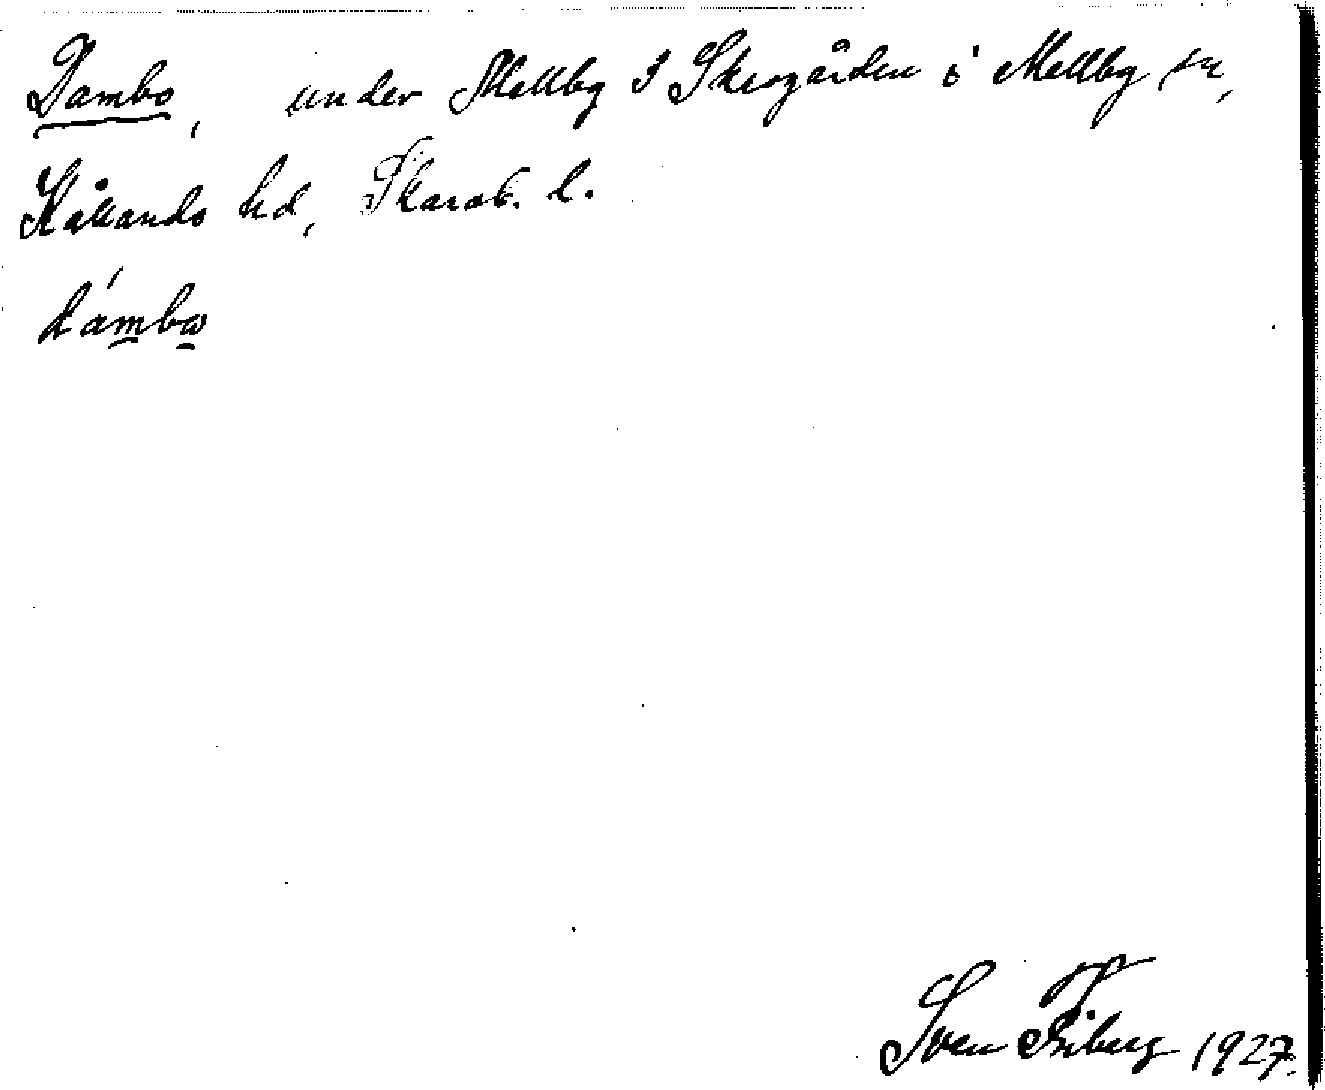 Dambo, under Mellby 3 Skergården i Mellby sn,
Kållands hd, Skarab. l.
dámbω
Sven Friberg 1927.